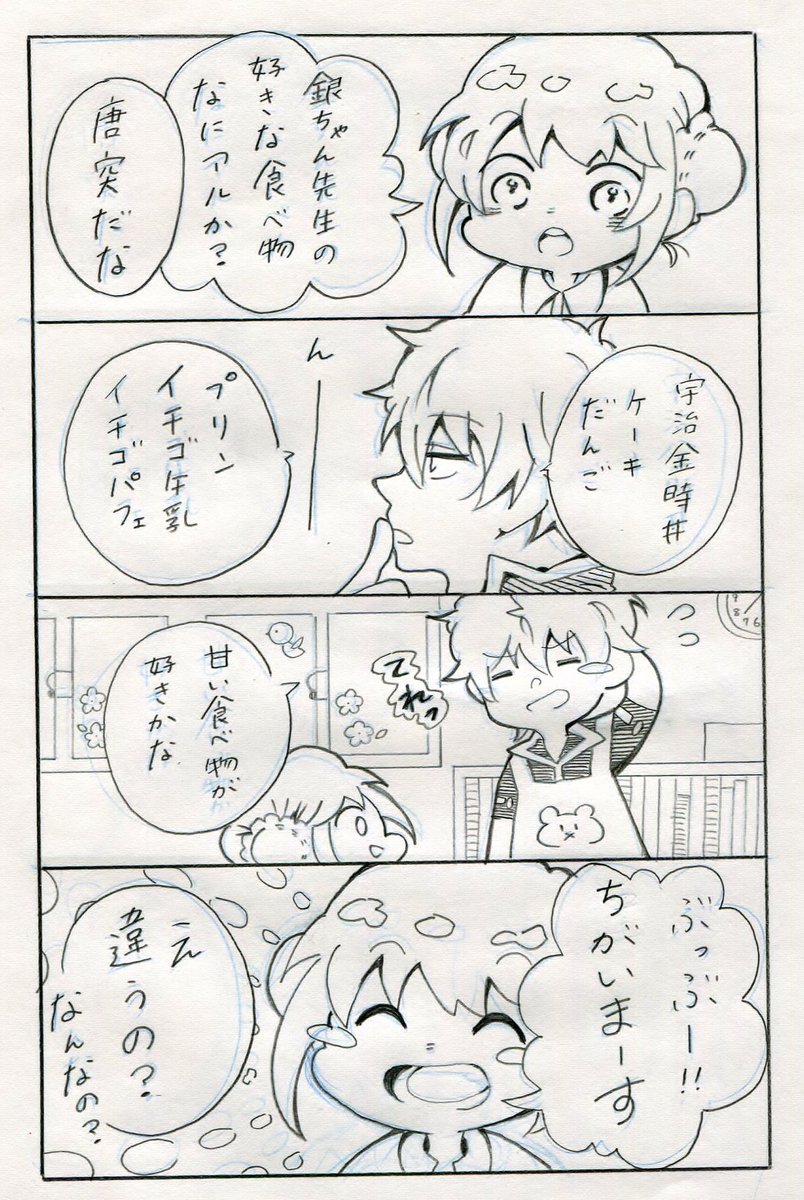 銀ちゃん先生の
好きな食べ物
なにアルか?
唐突だな
宇治金時丼
ケーキ
だんご
ん
プリン
イチゴ牛乳
イチゴパフェ
9
8
7
6
てれっ
甘い食べ物が
好きかな
ぶっぶー!!
ちがいまーす
え
違うの?
なんなの?